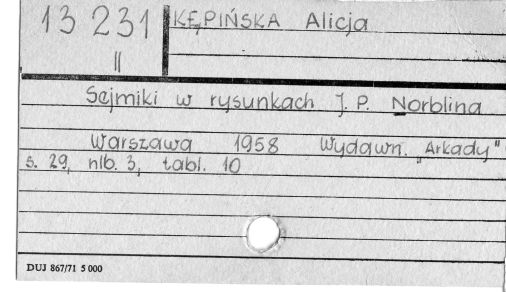 13 231
II
KĘPIŃSKA Alicja
Sejmiki w rysunkach J. P. Norblina
Warszawa 1958 Wydawn. „Arkady"
s. 29, nlb. 3, tabl. 10
DUJ 867/71 5 000